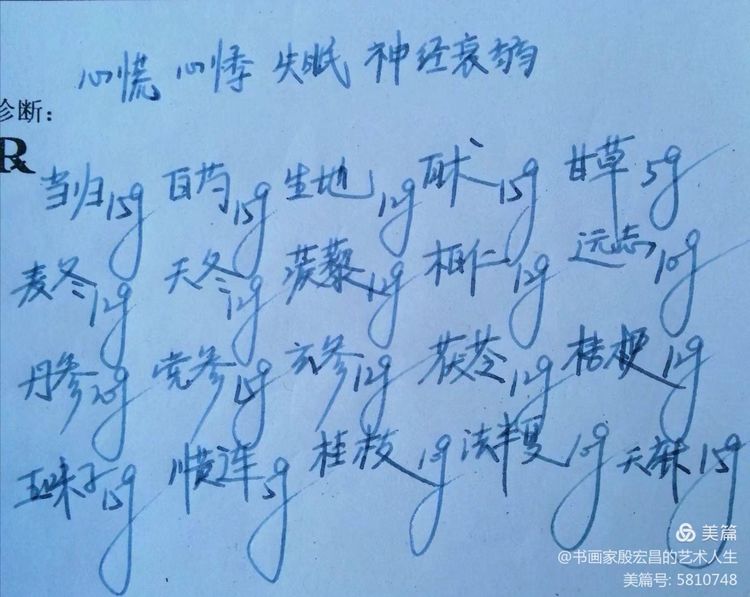 心慌 心悸 失眠 神经衰弱
诊断:
R
当归15g 白芍15g 生地12g 白术15g 甘草5g
麦冬12g 天冬12g 蒺藜12g 柏仁12g 远志10g
丹参20g 党参15g 玄参12g 茯苓12g 桔梗12g
五味子15g 黄连5g 桂枝10g 法半夏10g 天麻15g
美篇
@书画家殷宏昌的艺术人生
美篇号: 5810748